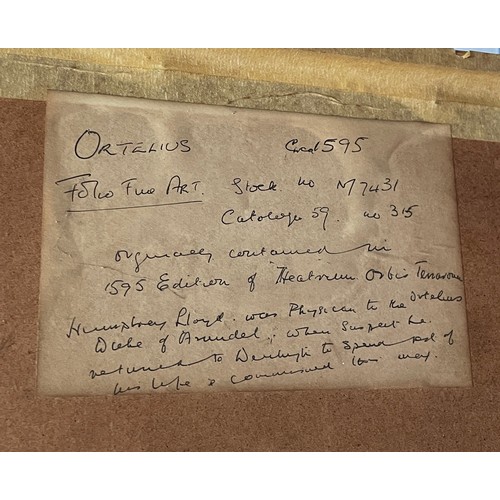 ORTELIUS Circa 1595
Folio Fine ART. Stock no M7431
Catologe 59. no 315
originally contained in
1595 Edition of Theatrum Orbis Terrarum
Humphrey Lloyd was Physician to the Ortelius
Duke of Arundel, when suspect he
returned to Denbigh to spend rest of
his life & commissioned this map.